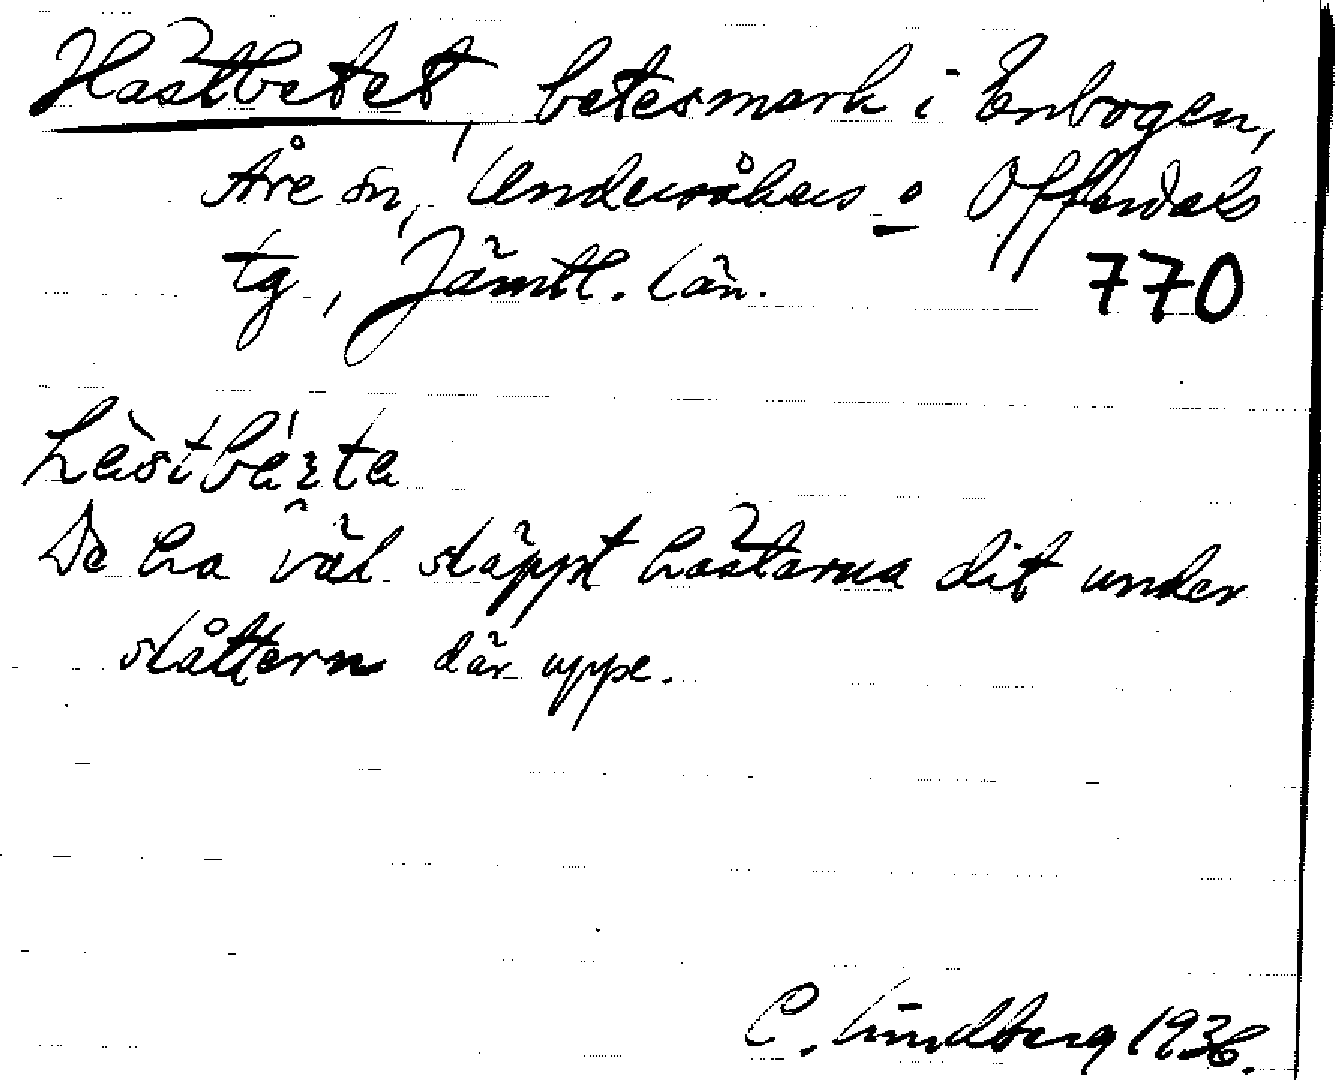 Hästbetet, betesmark i Enbogen,
Åre sn, Undersåkers o Offerdals
tg, Jämtl. län. 770
hèstbé̀ɛta
De ha väl släppt hästarna dit under
slåttern där uppe.
C. Lindberg 1936.